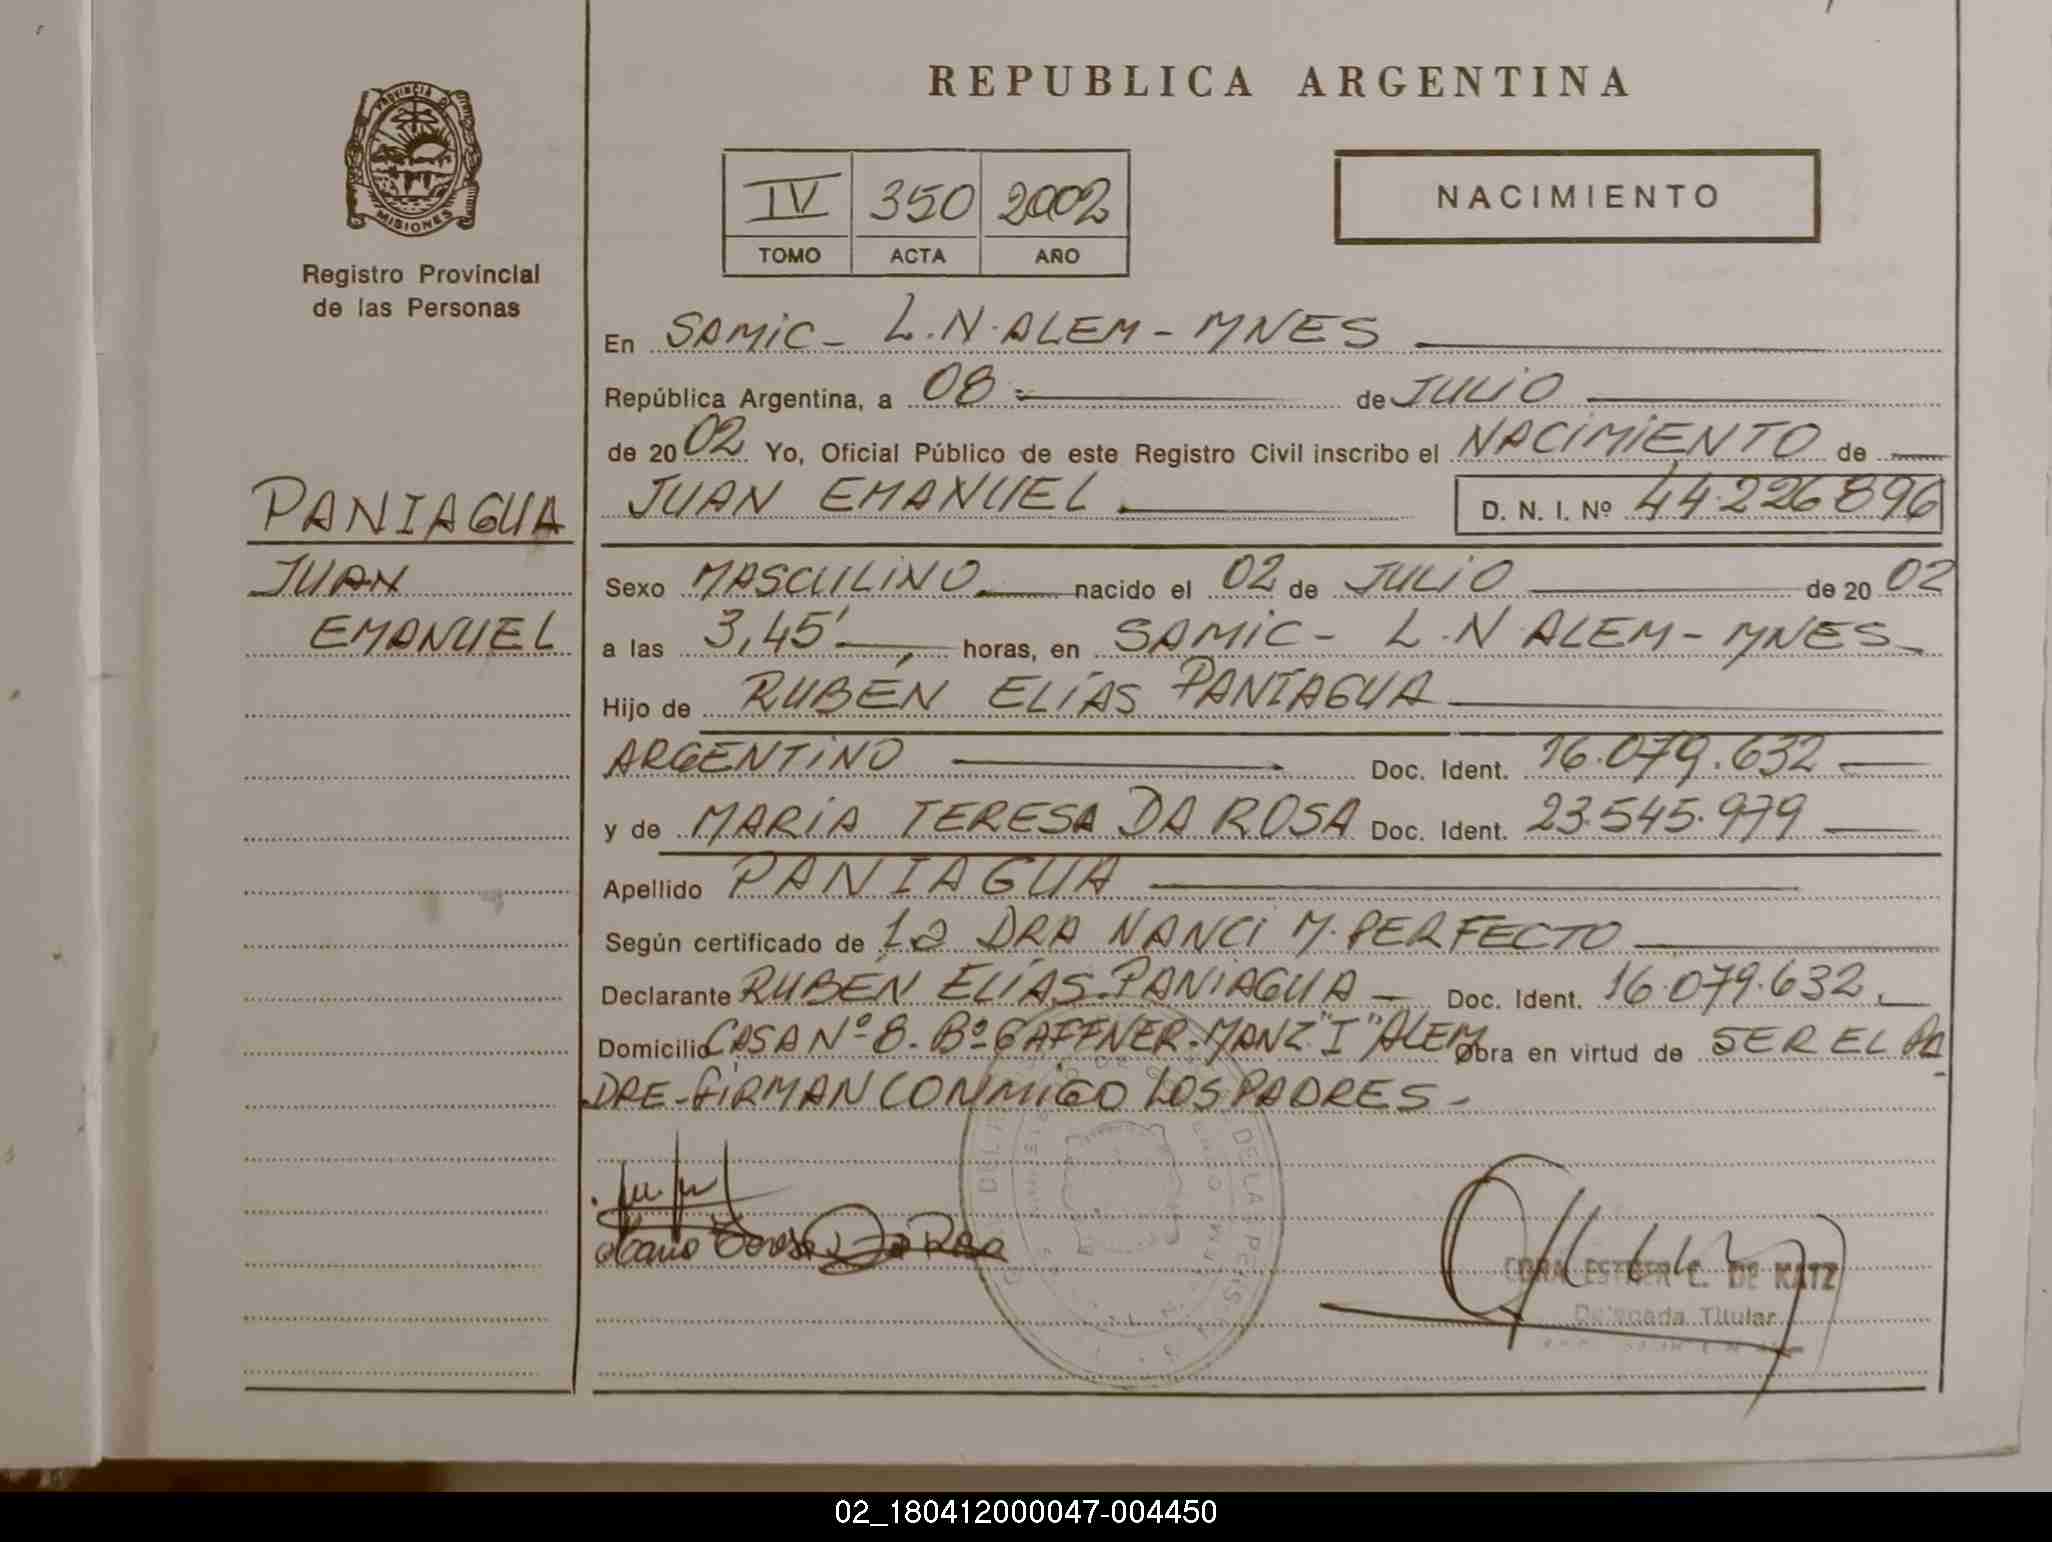 REPUBLICA ARGENTINA
PROVINCIA DE MISIONES
Registro Provincial
de las Personas
IV 350 2002
TOMO ACTA AÑO
NACIMIENTO
En SAMIC - L.N. ALEM - MNES
República Argentina, a 08 de JULIO
de 2002 Yo, Oficial Público de este Registro Civil inscribo el NACIMIENTO de
JUAN EMANUEL D. N. I. Nº 44.226896
PANIAGUA
JUAN
EMANUEL
Sexo MASCULINO nacido el 02 de JULIO de 2002
a las 3,45' horas, en SAMIC - L.N ALEM - MNES
Hijo de RUBÉN ELÍAS PANIAGUA
ARGENTINO Doc. Ident. 16.079.632
y de MARIA TERESA DA ROSA Doc. Ident. 23.545.979
Apellido PANIAGUA
Según certificado de la DRA NANCI M. PERFECTO
Declarante RUBÉN ELÍAS PANIAGUA - Doc. Ident. 16.079.632.
Domicilio CASA Nº 8. Bº GAFFNER - MANZ "I" ALEM Obra en virtud de SER EL PA
DRE - FIRMAN CONMIGO LOS PADRES -
Maria Teresa Da Rosa
ESTHER C. DE KATZ
Delegada Titular
02_180412000047-004450